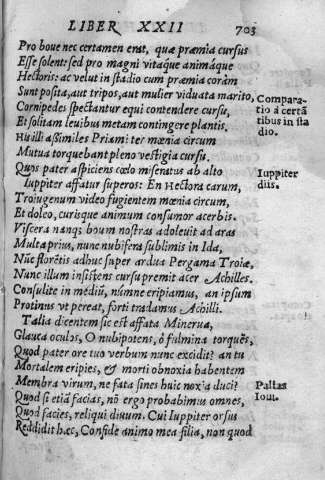 LIBER XXII 703
Pro boue nec certamen erat, quæ præmia cursus
Esse solent: sed pro magni vitaque animáque
Hectoris: ac velut in stadio cum præmia coràm
Sunt posita, aut tripos, aut mulier viduata marito,
Cornipedes spectantur equi contendere cursu,
Et solitam leuibus metam contingere plantis.
Compara-
tio à certã
tibus in sta
dio.
Hi illi assimiles Priami ter mœnia circum
Mutua torquebant pleno vestigia cursu.
Quos pater aspiciens cœlo miseratus ab alto
Iuppiter affatur superos: En Hectora carum,
Iuppiter
diis.
Troiugenum video fugientem mœnia circum,
Et doleo, curisque animum consumor acerbis.
Viscera nanq; boum nostras adoleuit ad aras
Multa prius, nunc nubifera sublimis in Ida,
Nũc florẽtis adhuc super ardua Pergama Troiæ.
Nunc illum insistens cursu premit acer Achilles.
Consulite in mediũ, númne eripiamus, an ipsum
Protinus vt pereat, forti tradamus Achilli.
Talia dicentem sic est affata Minerua,
Glauca oculos, O nubipotens, ô fulmina torquẽs,
Quod pater ore tuo verbum nunc excidit? an tu
Mortalem eripies, & morti obnoxia habentem
Membra virum, ne fata sines huic noxia duci?
Pallas
Ioui.
Quod si etiã facias, nõ ergo probabimus omnes,
Quod facies, reliqui diuum. Cui Iuppiter orsus
Reddidit hæc, Confide animo mea filia, non quod